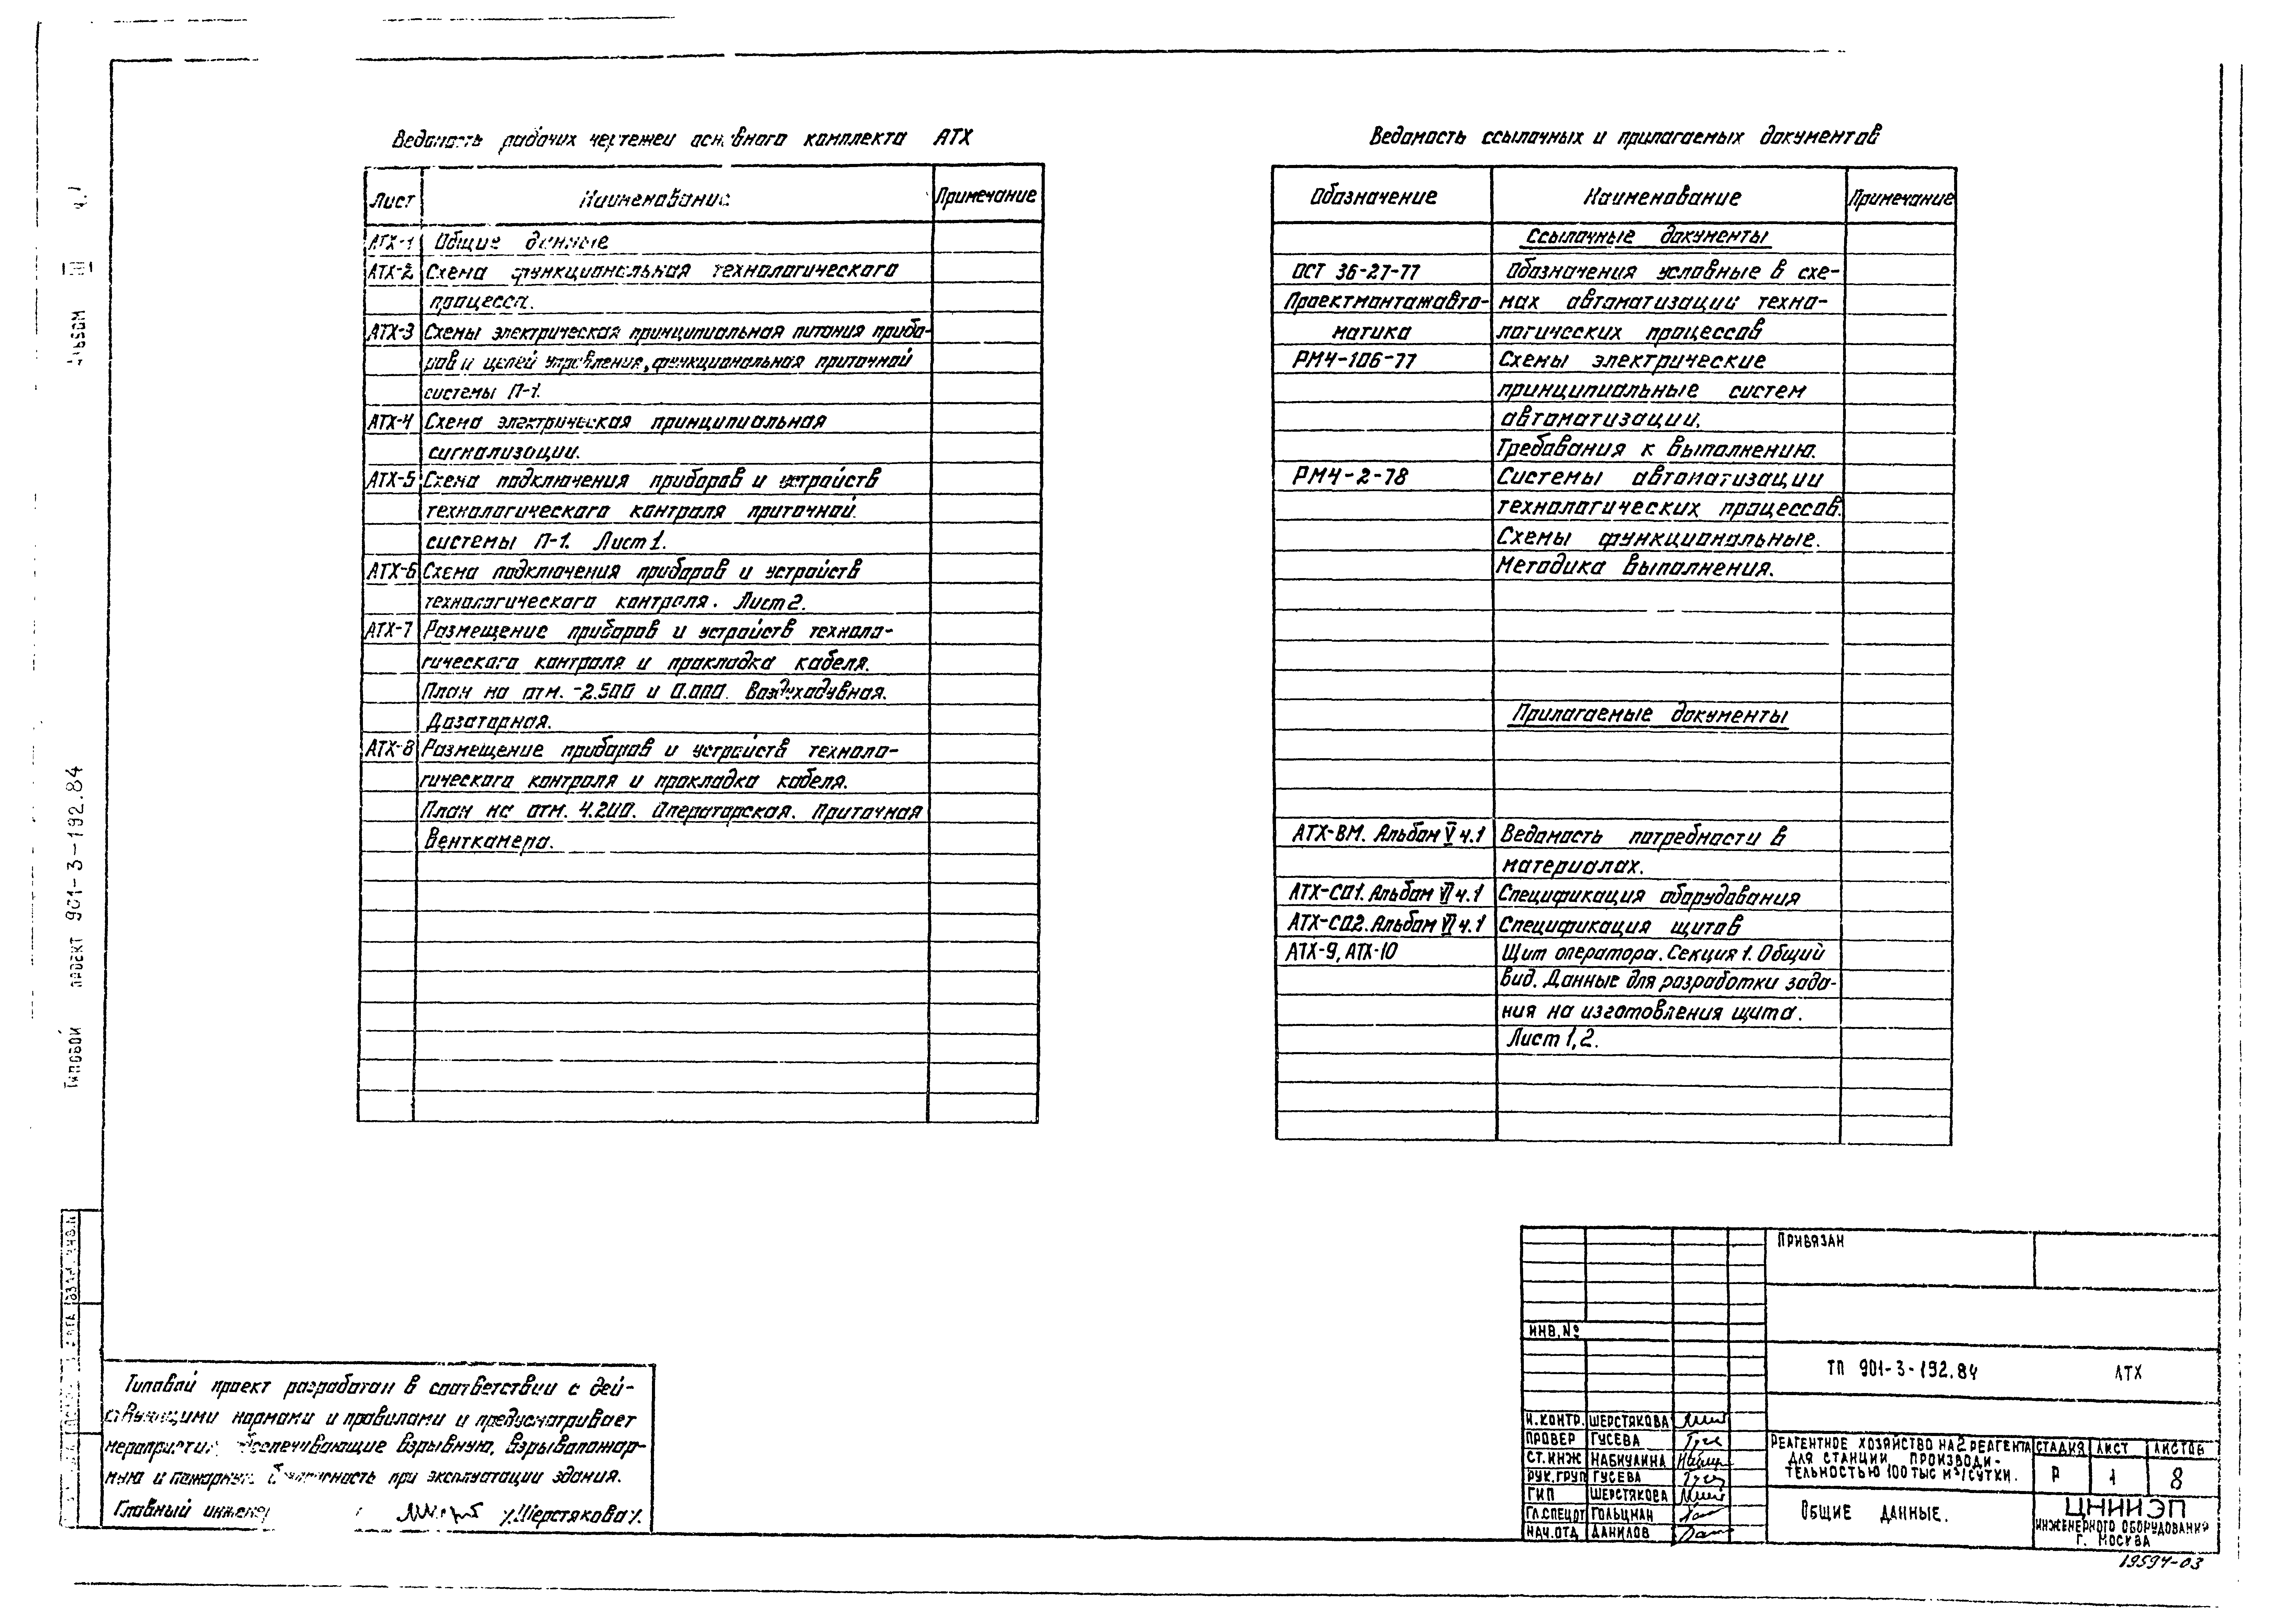 Ведомость рабочих чертежей основного комплекта АТХ
Лист Наименование Примечание
АТХ-1 Общие данные
АТХ-2 Схема функциональная технологического
процесса.
АТХ-3 Схемы электрическая принципиальная питания прибо-
ров и цепей управления, функциональная приточной
системы П-1.
АТХ-4 Схема электрическая принципиальная
сигнализации.
АТХ-5 Схема подключения приборов и устройств
технологического контроля приточной
системы П-1. Лист 1.
АТХ-6 Схема подключения приборов и устройств
технологического контроля. Лист 2.
АТХ-7 Размещение приборов и устройств техноло-
гического контроля и прокладка кабеля.
План на отм. -2.500 и 0.000. Воздуходувная.
Дозаторная.
АТХ-8 Размещение приборов и устройств техноло-
гического контроля и прокладка кабеля.
План на отм. 4.200. Операторская. Приточная
Венткамера.
Ведомость ссылочных и прилагаемых документов
Обозначение Наименование Примечание
Ссылочные документы
ОСТ 36-27-77 Обозначения условные в схе-
Проектмонтажавто- мах автоматизации техно-
матика логических процессов
РМ4-106-77 Схемы электрические
принципиальные систем
автоматизации.
Требования к выполнению.
РМ4-2-78 Системы автоматизации
технологических процессов.
Схемы функциональные.
Методика выполнения.
Прилагаемые документы
АТХ-ВМ. Альбом V ч.1 Ведомость потребности в
материалах.
АТХ-СО1. Альбом VI ч.1 Спецификация оборудования
АТХ-СО2. Альбом VI ч.1 Спецификация щитов
АТХ-9, АТХ-10 Щит оператора. Секция 1. Общий
вид. Данные для разработки зада-
ния на изготовления щита.
Лист 1, 2.
Альбом III ч.1
Типовой проект 901-3-192.84
Типовой проект разработан в соответствии с дей-
ствующими нормами и правилами и предусматривает
мероприятия обеспечивающие взрывную, взрывопожар-
ную и пожарную безопасность при эксплуатации здания.
Главный инженер /Шерстякова/.
ПРИВЯЗАН
ИНВ. №
ТП 901-3-192.84 АТХ
Н.КОНТР. ШЕРСТЯКОВА
ПРОВЕР ГУСЕВА
СТ.ИНЖ НАБИУЛИНА
РУК.ГРУП ГУСЕВА
ГИП ШЕРСТЯКОВА
ГЛ.СПЕЦОТ ГОЛЬЦМАН
НАЧ.ОТД ДАНИЛОВ
РЕАГЕНТНОЕ ХОЗЯЙСТВО НА 2 РЕАГЕНТА
ДЛЯ СТАНЦИИ ПРОИЗВОДИ-
ТЕЛЬНОСТЬЮ 100 ТЫС М³/СУТКИ.
СТАДИЯ ЛИСТ ЛИСТОВ
Р 1 8
ОБЩИЕ ДАННЫЕ.
ЦНИИЭП
ИНЖЕНЕРНОГО ОБОРУДОВАНИЯ
Г. МОСКВА
19594-03